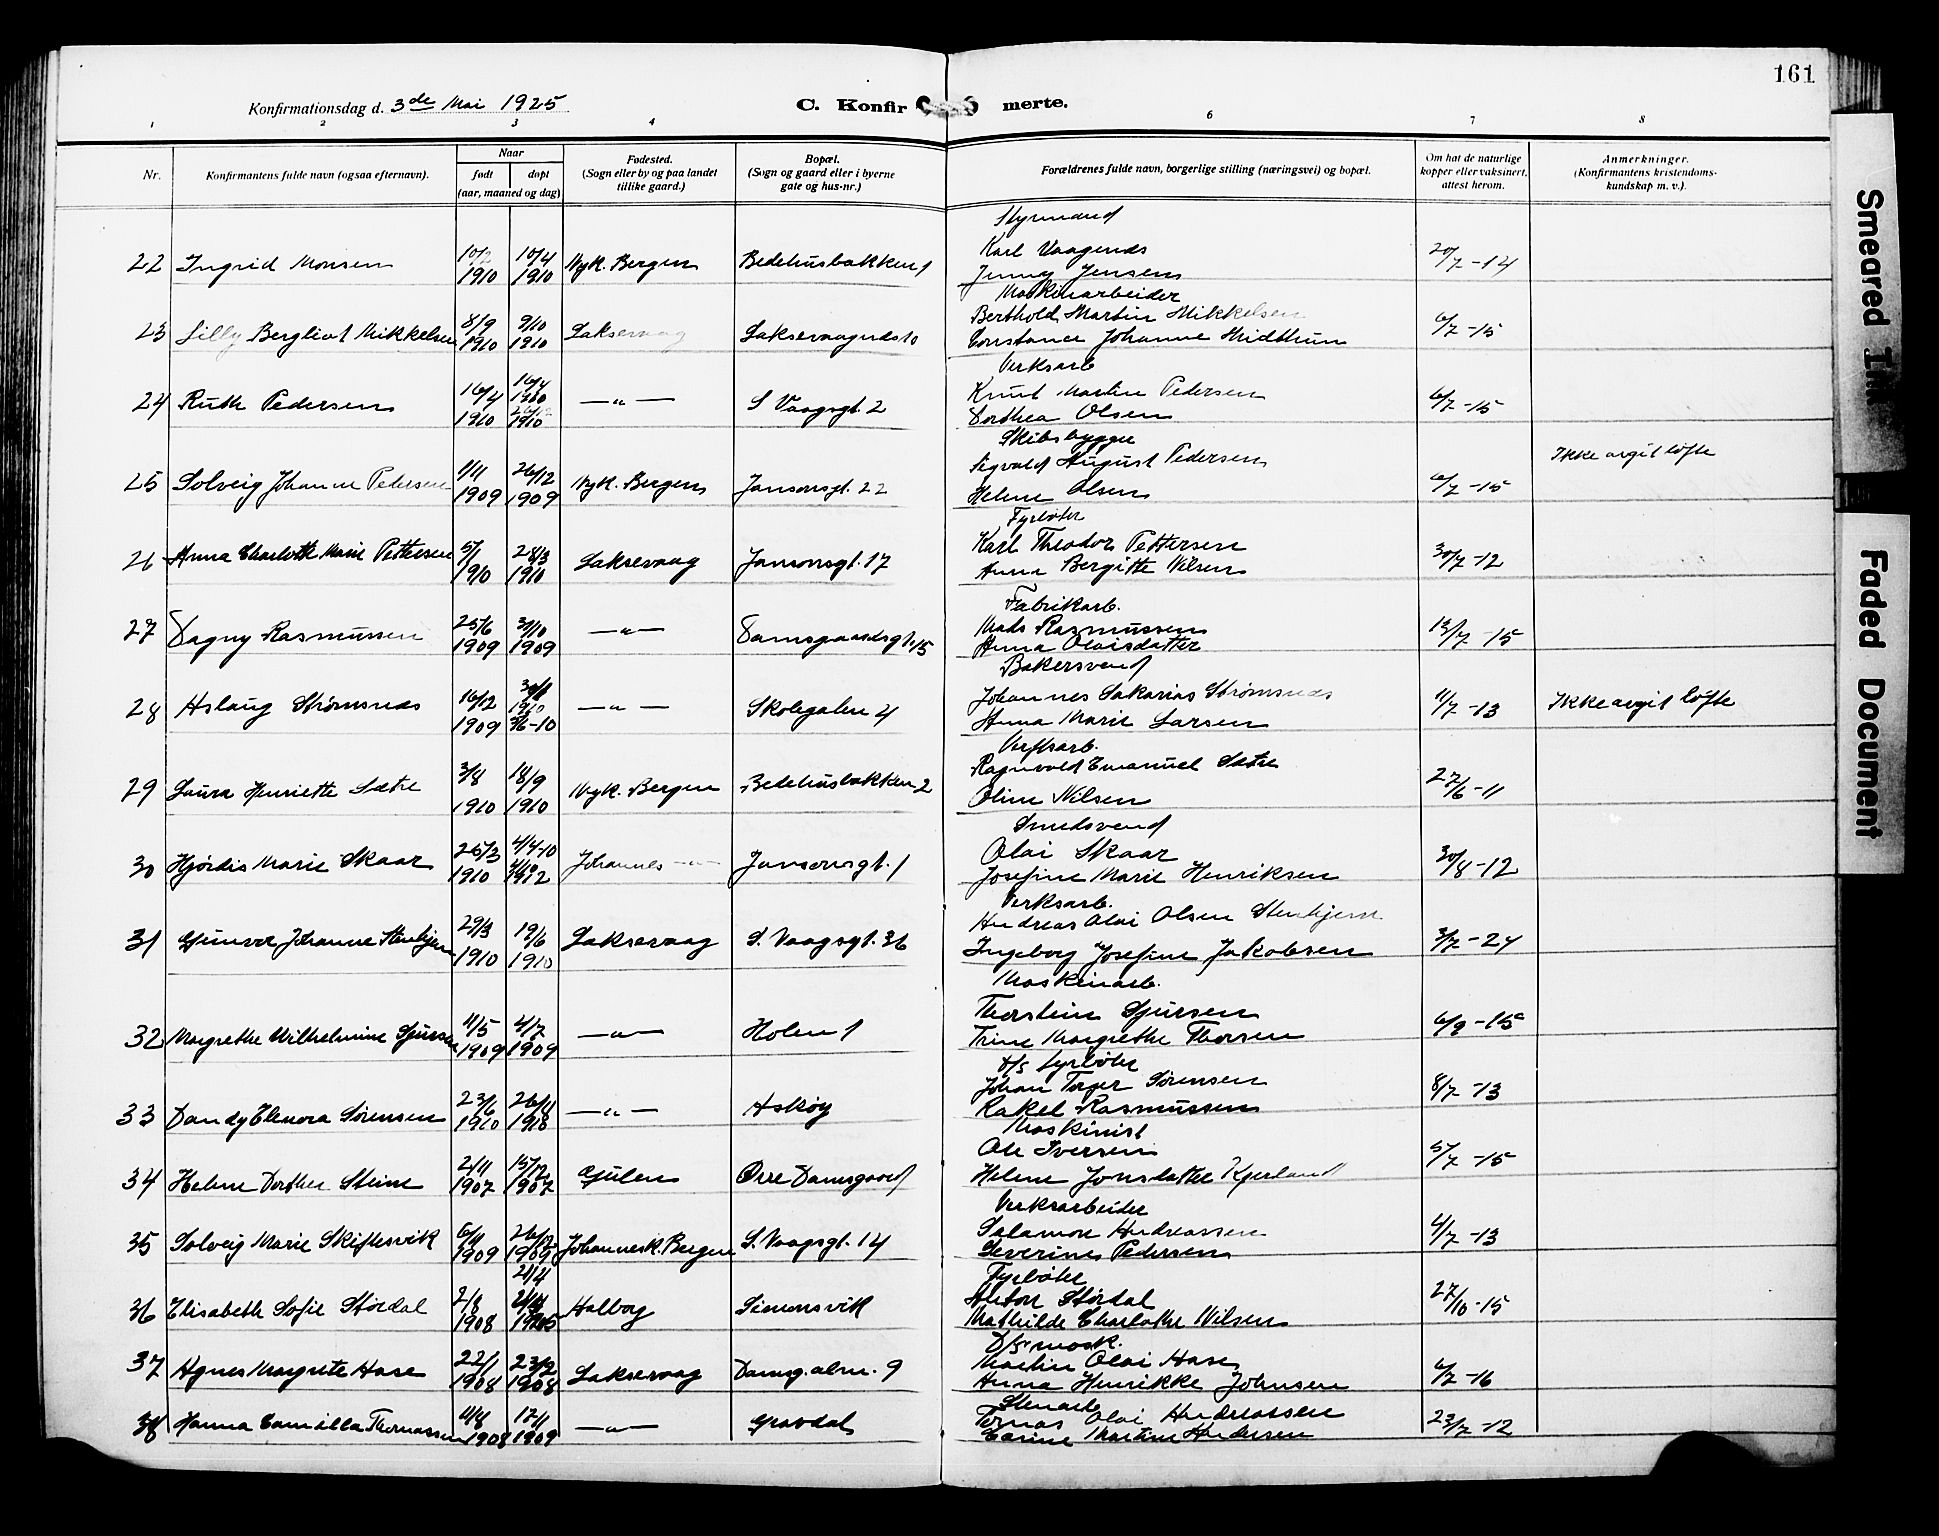 161
Konfirmationsdag d. 3de Mai 1925
C. Konfir merte.
1 2 3 4 6 7 8
Nr.
Konfirmantens fulde navn (ogsaa efternavn).
Naar
født døpt
(aar, maaned og dag)
Fødested.
(Sogn eller by og paa landet
tillike gaard.)
Bopæl.
(Sogn og gaard eller i byerne
gate og hus-nr.)
Forældrenes fulde navn, borgerlige stilling (næringsvei) og bopæl.
Om hat de naturlige
kopper eller vaksinert,
attest herom.
Anmerkninger.
(Konfirmantens kristendoms-
kundskap m. v.).
Styrmand
Karl Vaagenes
22 Ingrid Monsen 10/2 1910 10/4 1910 Nyk. Bergen Bedehusbakken 1 20/7-14
Jenny Jensen
Maskinarbeider
Berthold Martin Mikkelsen
23 Lilly Bergliot Mikkelsen 8/9 1910 9/10 1910 Laksevaag Laksevaagnes 10 6/7-15
Constance Johanne Midthun
Verksarb
Knut Martin Pedersen
24 Ruth Pedersen 16/4 1910 —"— S Vaagsgt. 2 6/7-15
Dorthea Olsen
Skibsbygger
Sigvald August Pedersen
Ikke avgit løfte
25 Solveig Johanne Pedersen 1/11 1909 26/12 1909 Nyk. Bergen Jansonsgt. 22 6/7-15
Helene Olsen
Fyrbøter
Karl Theodor Pettersen
26 Anna Charlotte Marie Pettersen 5/1 1910 28/3 1910 Laksevaag Jansonsgt. 17 30/7-12
Anna Bergitte Nilsen
Fabrikarb.
Mads Rasmussen
27 Dagny Rasmussen 25/6 1909 31/10 1909 —"— Damsgaardsgt. 15 13/7-15
Anna Olaisdatter
Bakersvend
Johannes Sakarias Strømsnes
28 Aslaug Strømsnes 16/12 1909 1910 3/6-10 —"— Skolegaten 4 11/7-13 Ikke avgit løfte
Anna Marie Larsen
Verksarb.
Ragnvald Emanuel Sætre
29 Laura Henriette Sætre 3/8 1910 18/9 1910 Nyk. Bergen Bedehusbakken 2 27/6-11
Oline Nilsen
Smedsvend
Olai Skaar
30 Hjørdis Marie Skaar 26/3 1910 4/4-10 Johannes —"— Jansonsgt. 1 30/8-12
Josefine Marie Henriksen
Verksarb.
Andreas Olai Olsen Stenhjem
31 Gunvor Johanne Stenhjem 29/3 1910 19/6 1910 Laksevaag S. Vaagsgt. 36 3/7-24
Ingeborg Josefine Jakobsen
Maskinarb.
Thorstein Sjursen
32 Margrethe Wilhelmine Sjursen 11/5 1909 4/7 1909 —"— Holen 1 6/9-15
Trine Margrethe Thorsen
D/S fyrbøter
Johan Torger Sørensen
33 Dandy Elenora Sørensen 23/6 1910 26/11 —"— Askøy 8/7-13
Rakel Rasmussen
Maskinist
Ole Iversen
34 Helene Dorthea Steine 2/11 1907 15/12 1907 Gulen Øvre Damsgaard 5/7-15
Helene Jonsdatter Kjerland
Verksarbeider
Salamon Andreassen
35 Solveig Marie Skiftesvik 6/11 1909 26/12 1909 Johannesk. Bergen S. Vaagsgt. 14 4/7-13
Severine Pedersen
Fyrbøter
Anton Størdal
36 Elisabeth Sofie Størdal 2/8 1908 Aalborg Simonsvik 27/10-15
Mathilde Charlotte Nilsen
D/S mask.
Martin Olai Hase
37 Agnes Margrete Hase 22/1 1908 23/2 1908 Laksevaag Damsg. alm. 9 6/7-16
Anna Henrikke Johnsen
Stenarb
Tomas Olai Andreassen
38 Hanna Camilla Thomassen 11/8 1908 17/1 1909 —"— Gravdal 23/7-12
Carine Martine Andersen
Smeared Ink
Faded Document